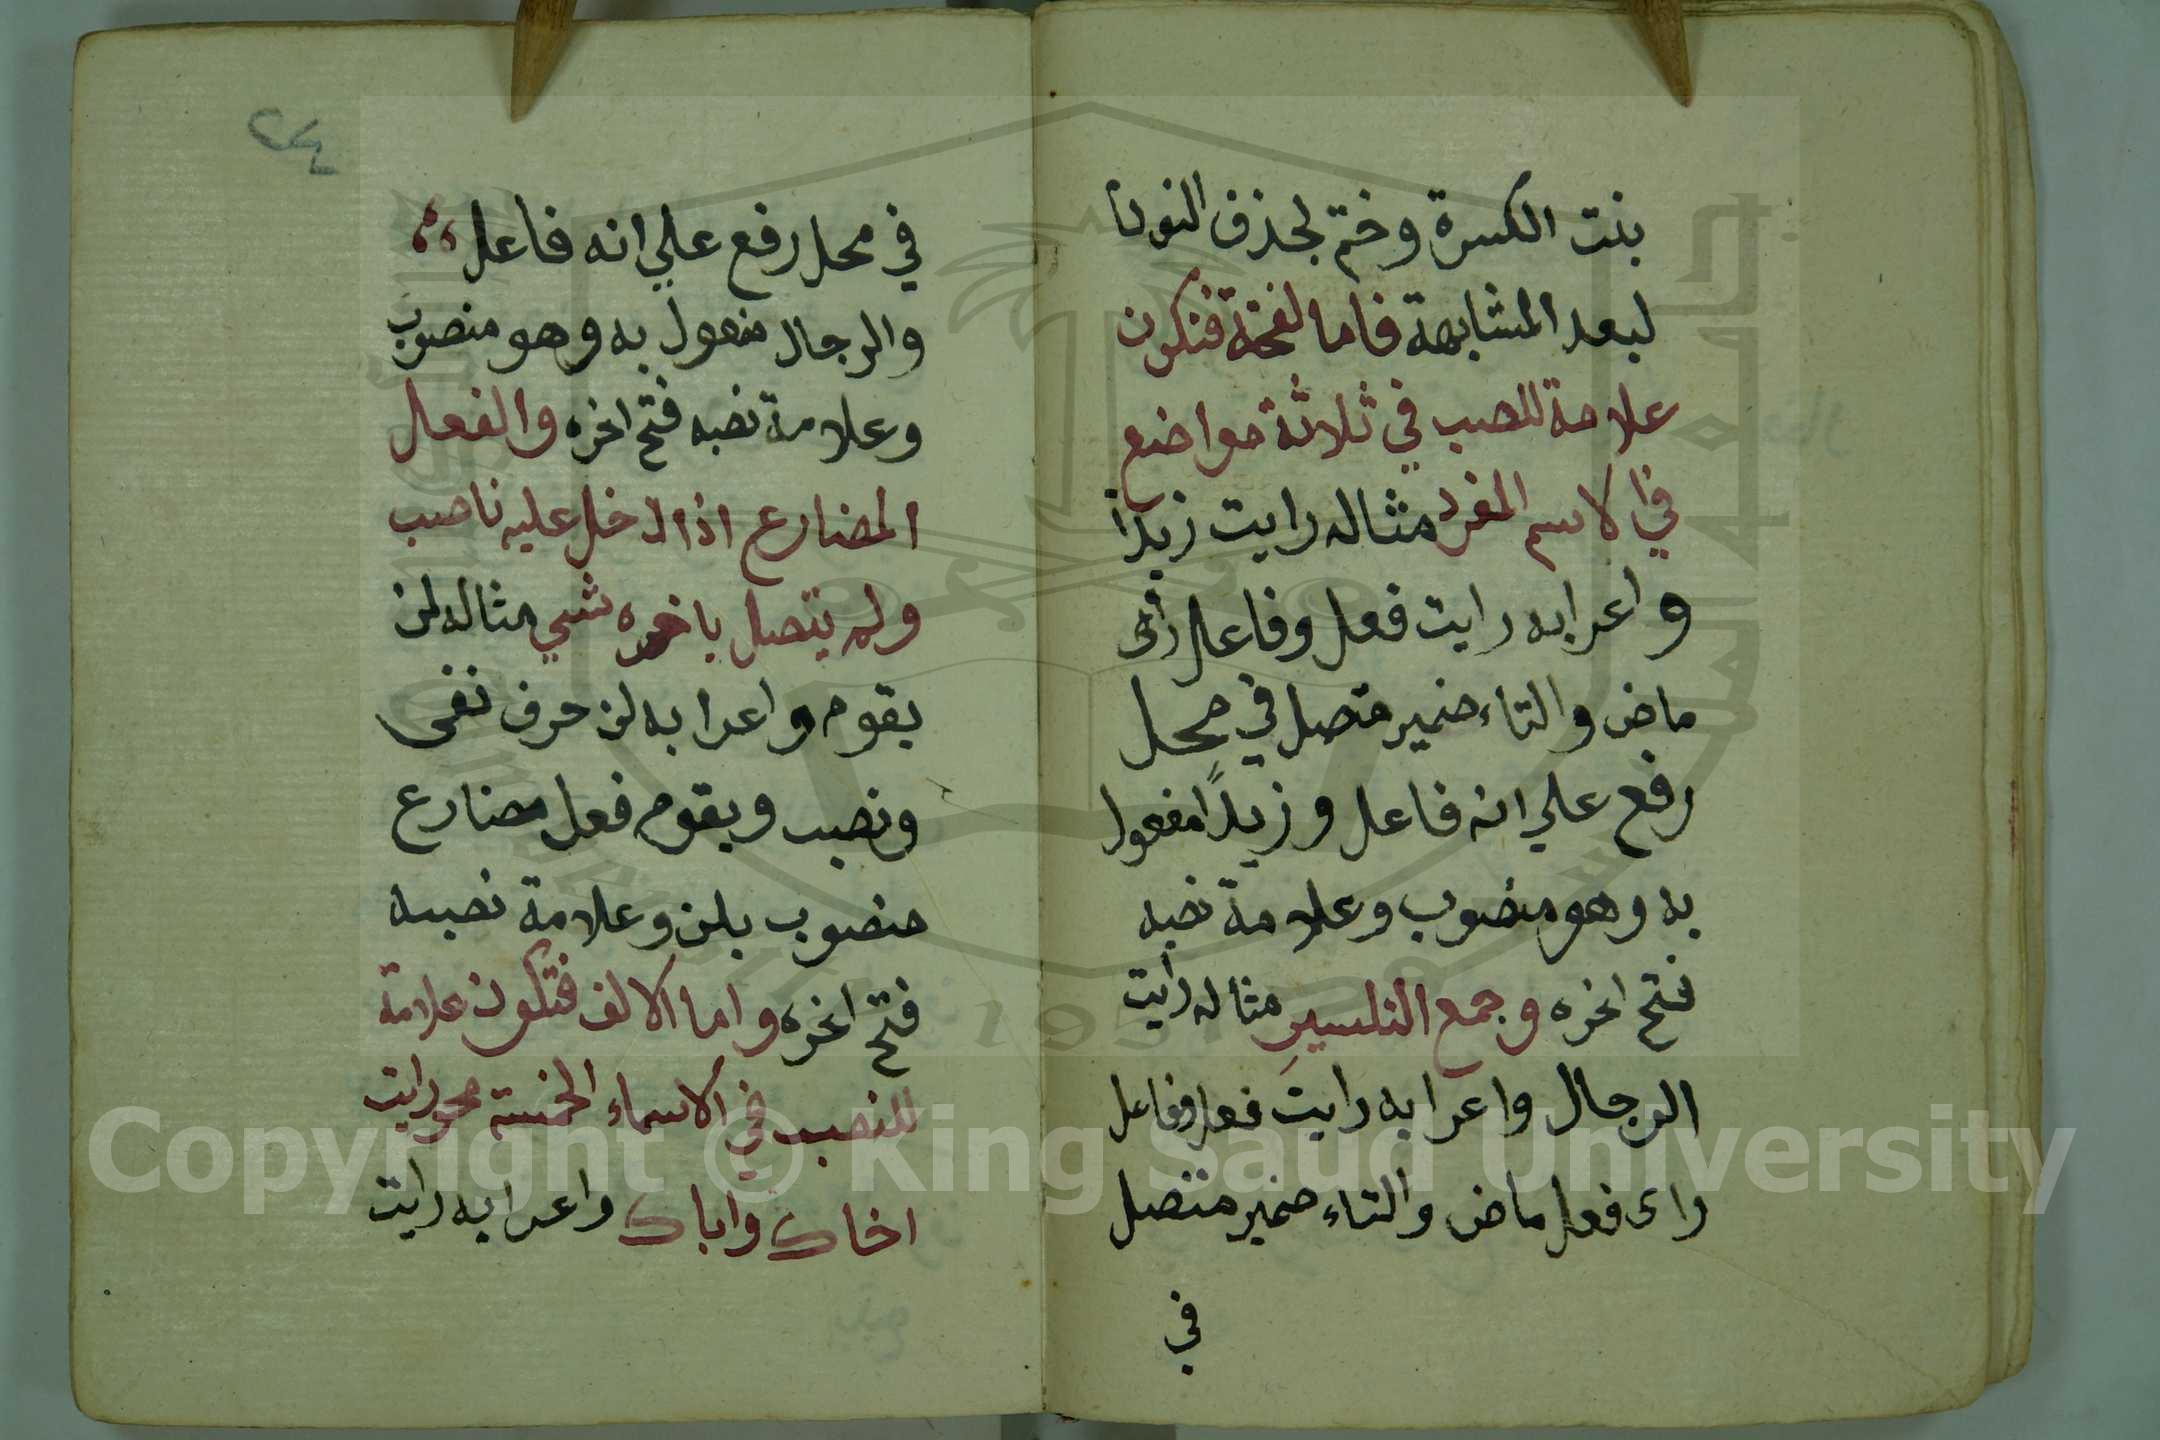 بنت الكسرة وختم بحذف النون
لبعد المشابهة فاما الفتحة فتكون
علامة للنصب في ثلاثة مواضع
في الاسم المفرد مثاله رايت زيدا
واعرابه رايت فعل وفاعل راى
ماض والتاء ضمير متصل في محل
رفع علي انه فاعل وزيدًا مفعول
به وهو منصوب وعلامة نصبه
فتح اخره وجمع التكسير مثاله رايت
الرجال واعرابه رايت فعل وفاعل
راى فعل ماض والتاء ضمير متصل
في
في محل رفع علي انه فاعل
والرجال مفعول به وهو منصوب
وعلامة نصبه فتح اخره والفعل
المضارع اذا دخل عليه ناصب
ولم يتصل باخره شي مثاله لن
يقوم واعرابه لن حرف نفى
ونصب ويقوم فعل مضارع
منصوب بلن وعلامة نصبه
فتح اخره واما الالف فتكون علامة
للنصب في الاسماء الخمسة نحو رايت
اخاك واباك واعرابه رايت
Copyright © King Saud University
1957